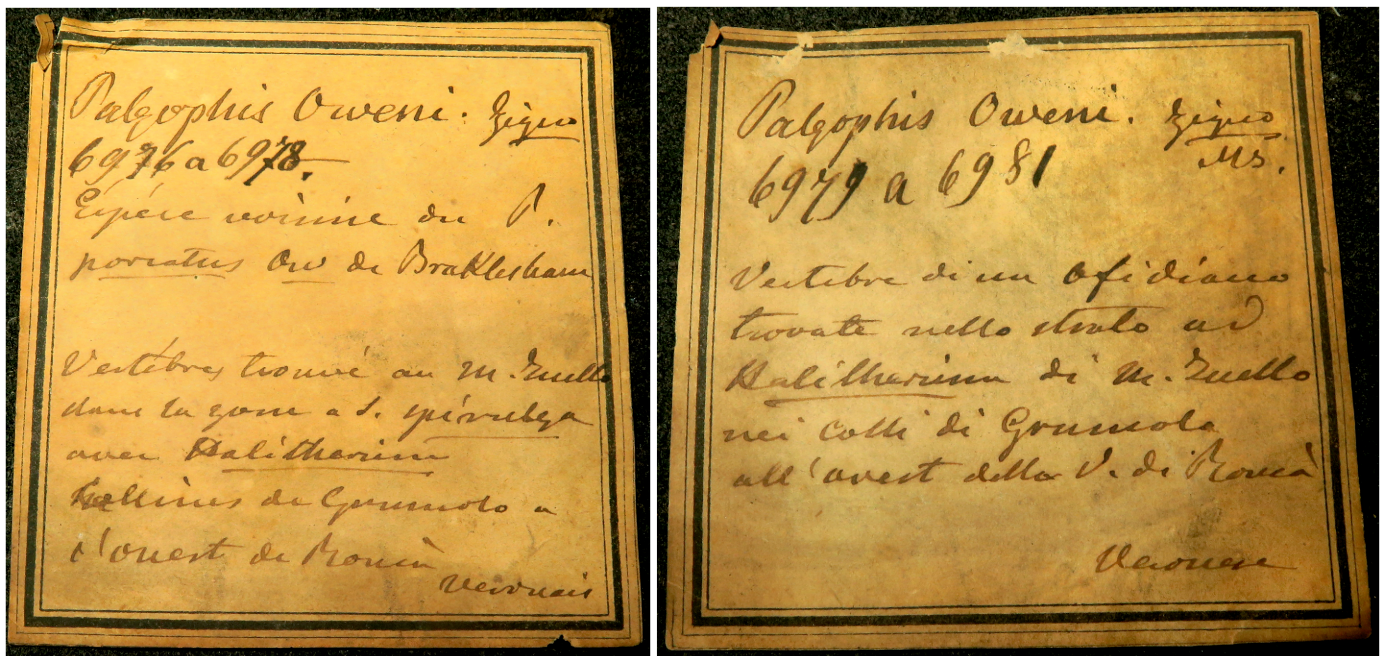 Palæophis Oweni. Zigno
6976 a 6978.
Espéce voisine du P.
porcatus Ow de Braklesham
Vertébres trouvé au M. Zuello
dans la zone a S. spirulæa
avec Halitherium
Collines de Grumolo a
l'ouest de Roncà
Veronais
Palæophis Oweni. Zigno
MS.
6979 a 6981
Vertebre di un Ofidiano
trovate nello strato ad
Halitherium di M. Zuello
nei colli di Grumolo
all'ovest della V. di Roncà
Veronese